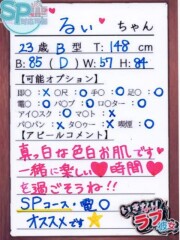 SP
るぃ♥ちゃん
23歳 B型 T:148cm
B:85(D)W:57 H:84
【可能オプション】
即○:× 即○:○
電○:○ バ○ブ:○ ロ○ター:○
アイ○スク:○ ○スト:×
パ○パン:× 喫煙:○
【アピールコメント】
真っ白な色白お肌です♥
一緒に楽しい♥時間♥
を過ごそうね!!
SPコース・電○
オススメです★
いきなり
ラブ彼女